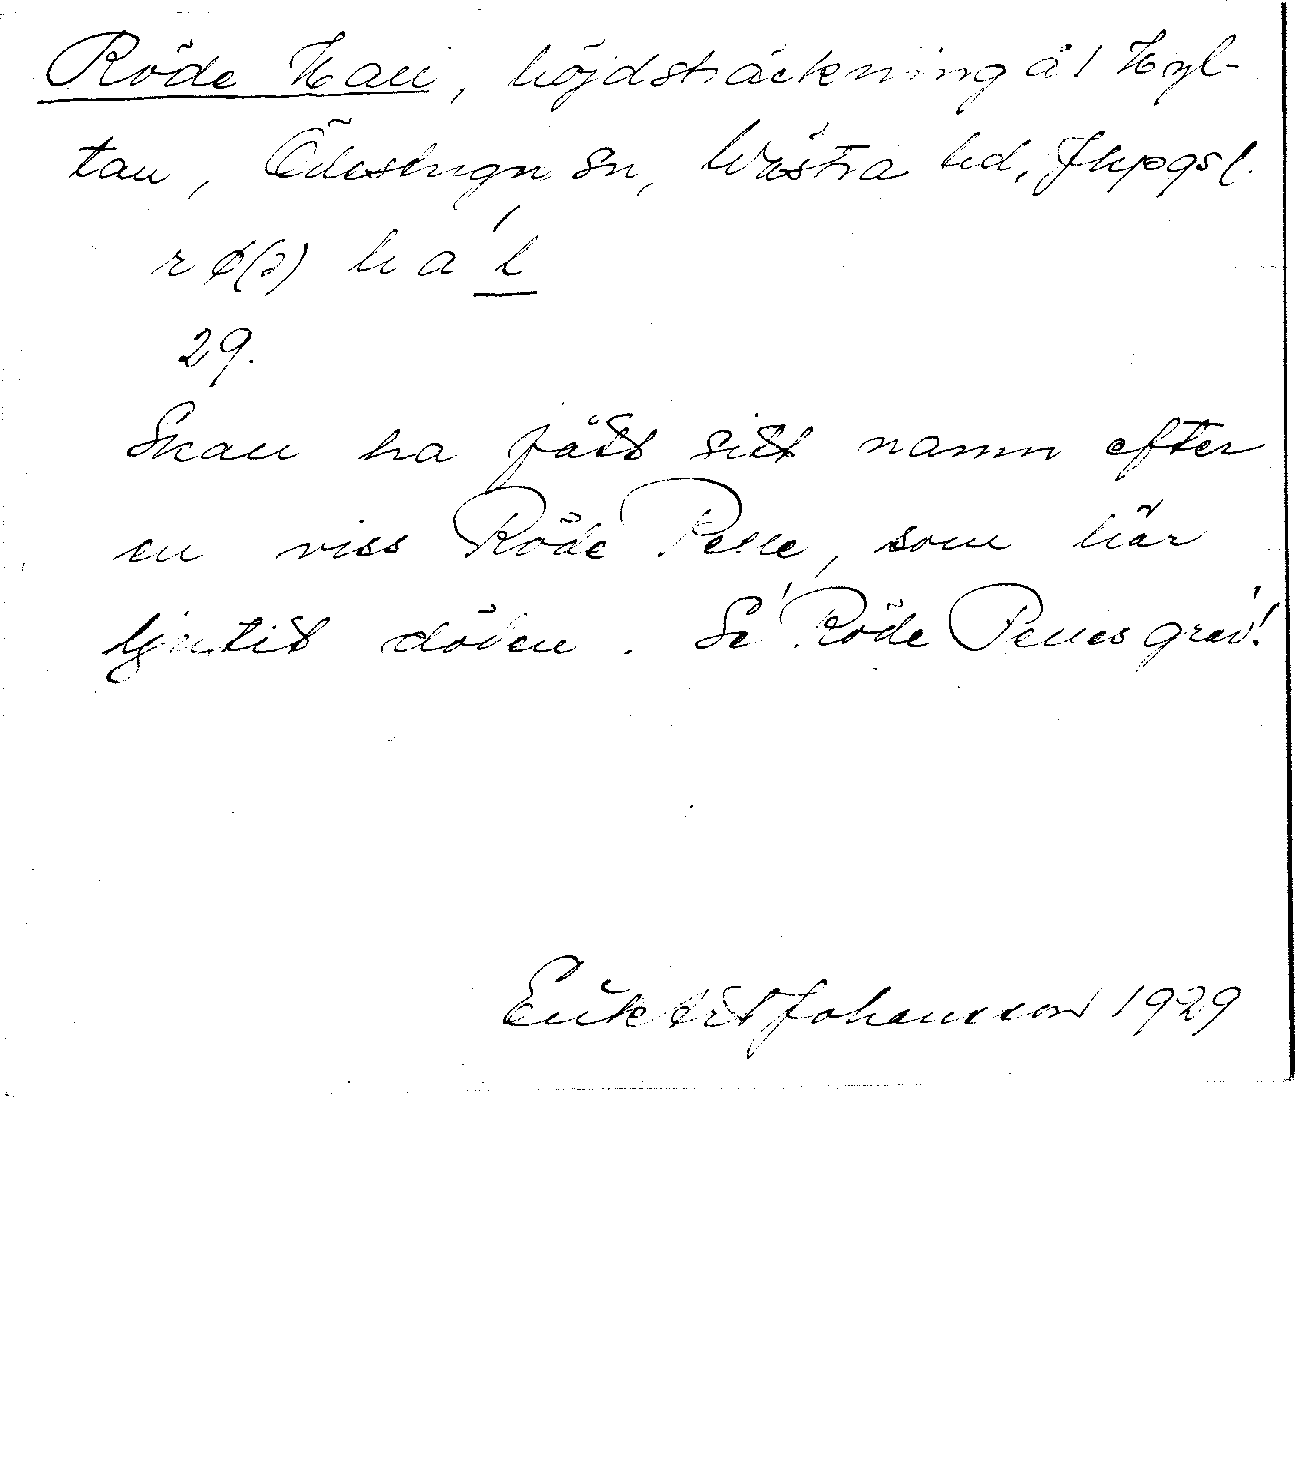 Röde Hall, höjdsträckning å 1 Hyl-
tan, Ödestugu sn, Västra hd, Jkpgs l.
rø(ə) hal
29.
Skall ha fått sitt namn efter
en viss Röde Pelle, som här
ljutit döden. Se 'Röde Pelles grav'!
Johansson 1929